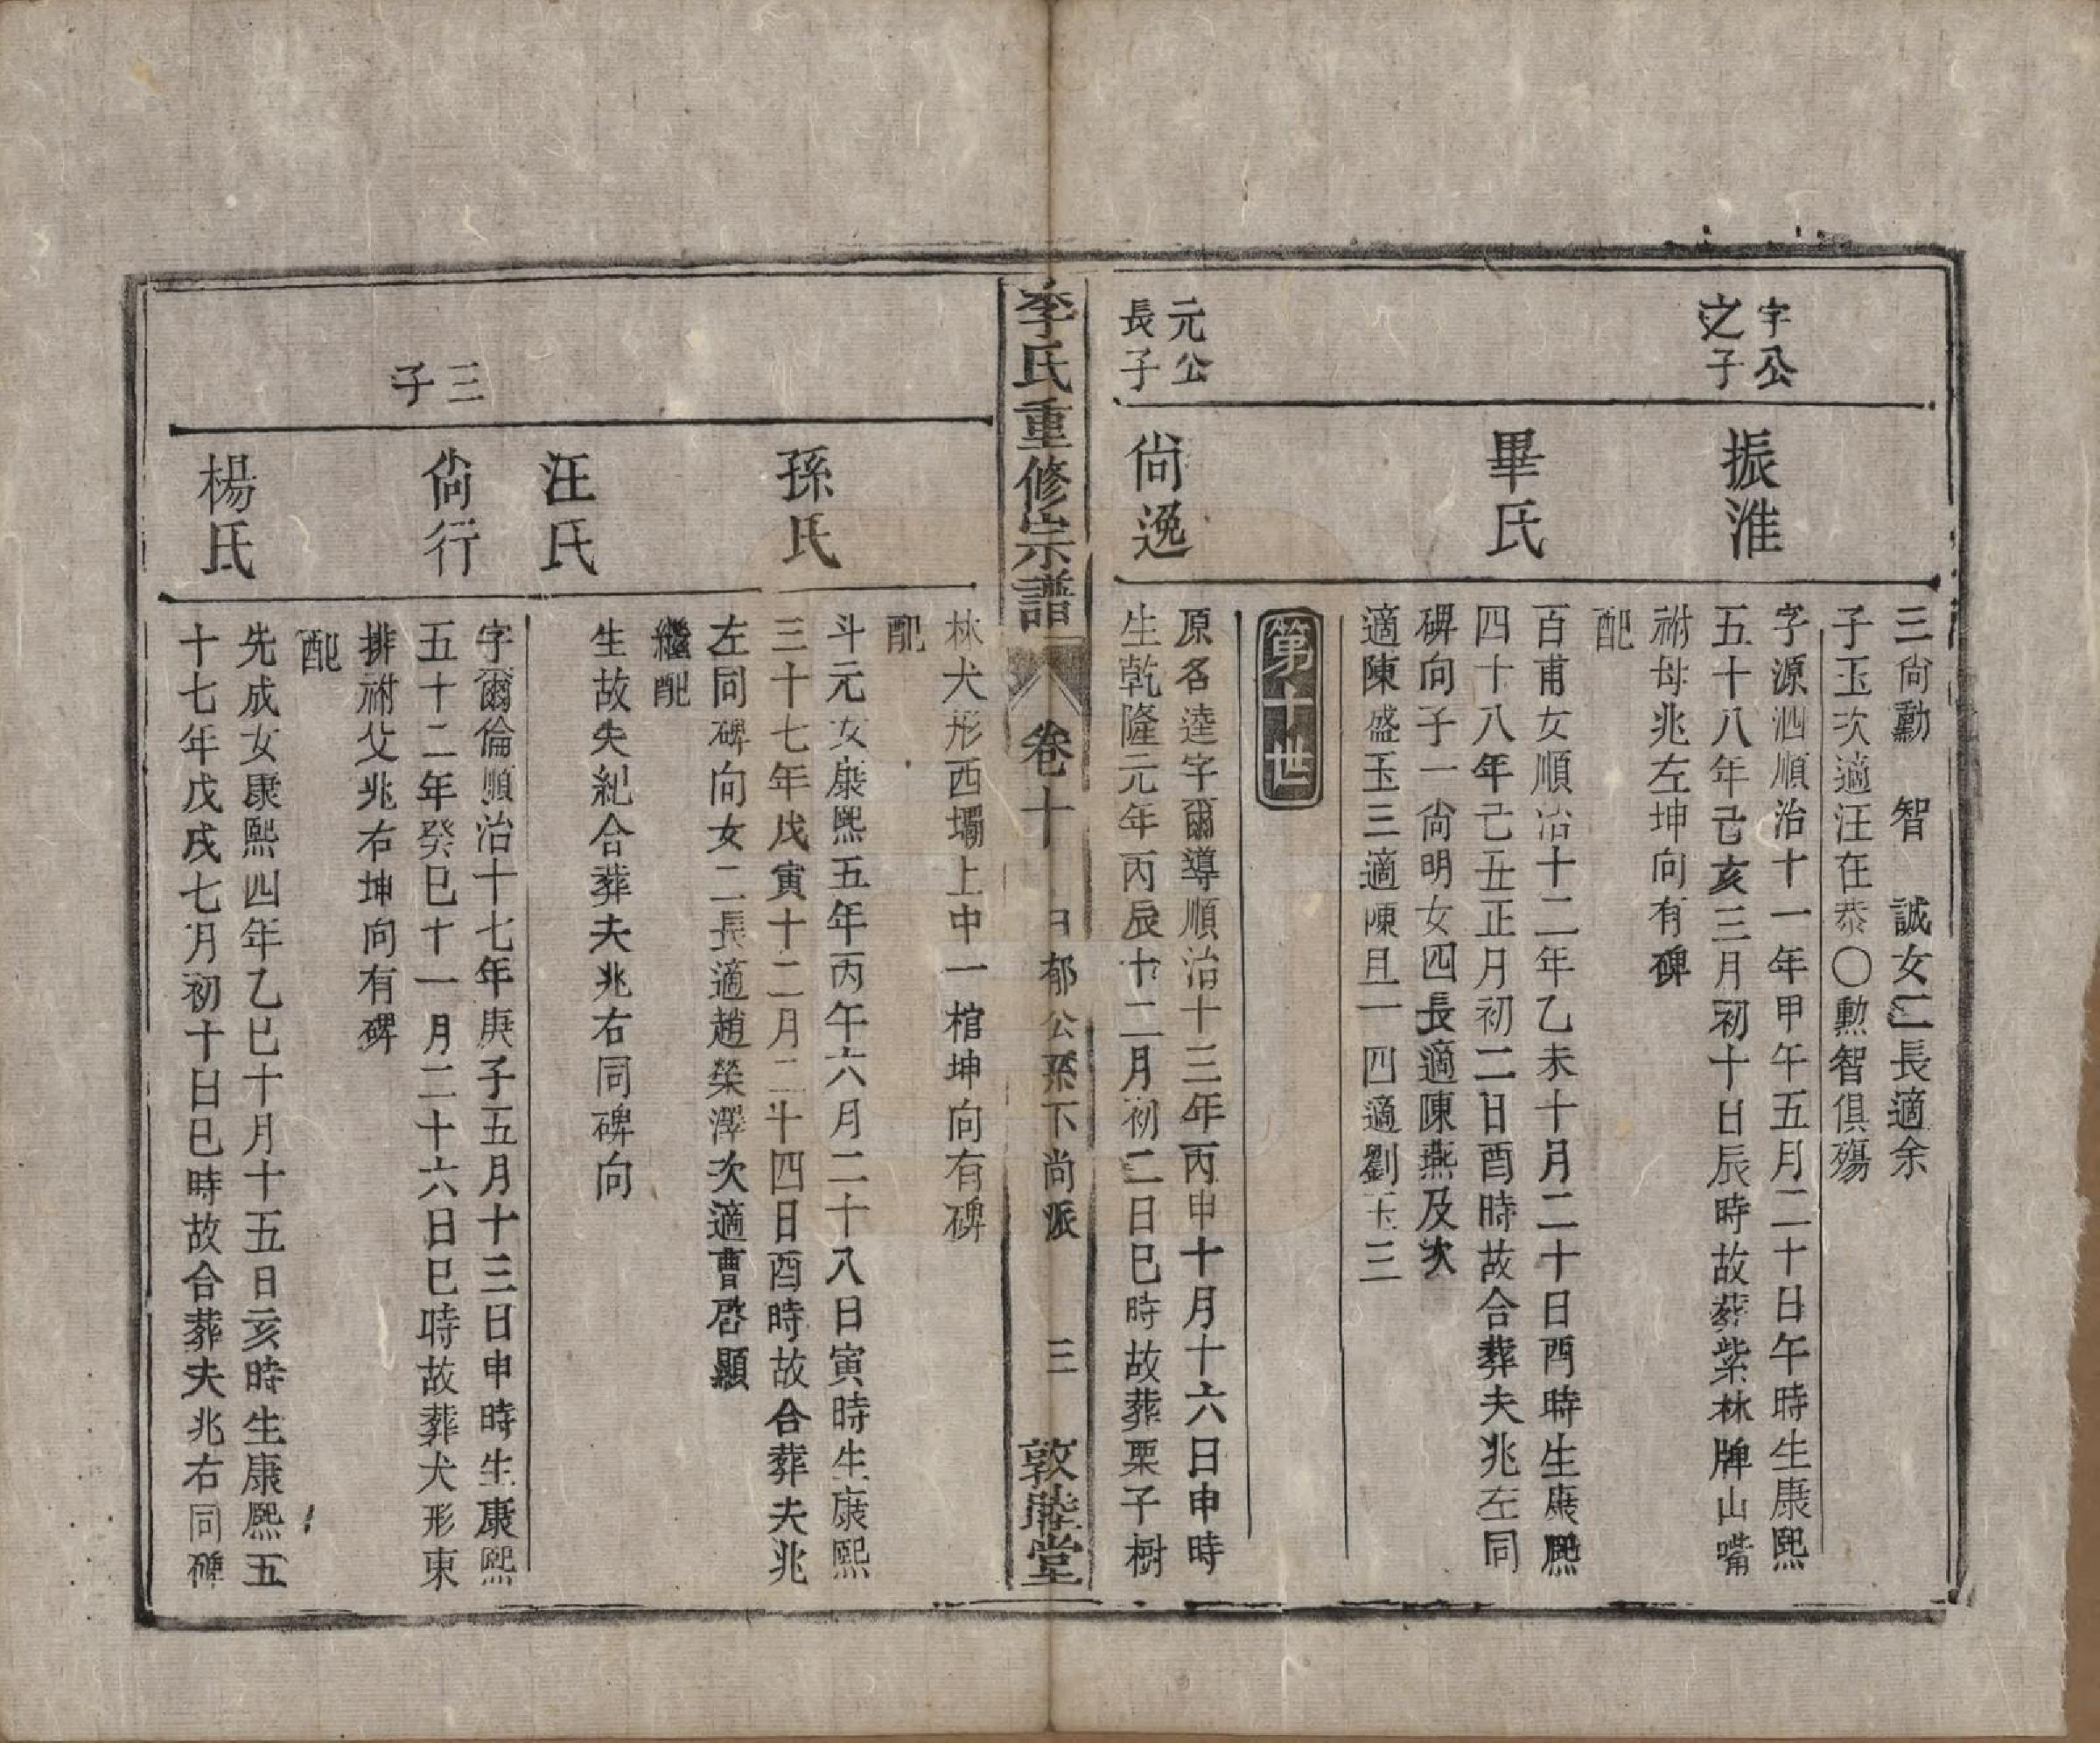 三尚勳　智　誠女二長適余
子玉次適汪在恭〇勲智俱殤
字公
之子
振淮
字源泗順治十一年甲午五月二十日午時生康熙
五十八年己亥三月初十日辰時故葬紫林牌山嘴
祔母兆左坤向有碑
畢氏
配
百甫女順治十二年乙未十月二十日酉時生康熙
四十八年己丑正月初二日酉時故合葬夫兆左同
碑向子一尙明女四長適陳燕及次
適陳盛玉三適陳且一四適劉玉三
第十世
元公
長子
尙逸
原名逵字爾導順治十三年丙申十月十六日申時
生乾隆元年丙辰十二月初二日巳時故葬栗子樹
李氏重修宗譜
卷十
郁公系下尚派
三
敦睦堂
林犬形西壩上中一棺坤向有碑
孫氏
配
斗元女康熙五年丙午六月二十八日寅時生康熙
三十七年戊寅十二月二十四日酉時故合葬夫兆
左同碑向女二長適趙榮澤次適曹啓顯
汪氏
繼配
生故失紀合葬夫兆右同碑向
三
子
尙行
字爾倫順治十七年庚子五月十三日申時生康熙
五十二年癸巳十一月二十六日巳時故葬犬形東
排祔父兆右坤向有碑
楊氏
配
先成女康熙四年乙巳十月十五日亥時生康熙五
十七年戊戌七月初十日巳時故合葬夫兆右同碑